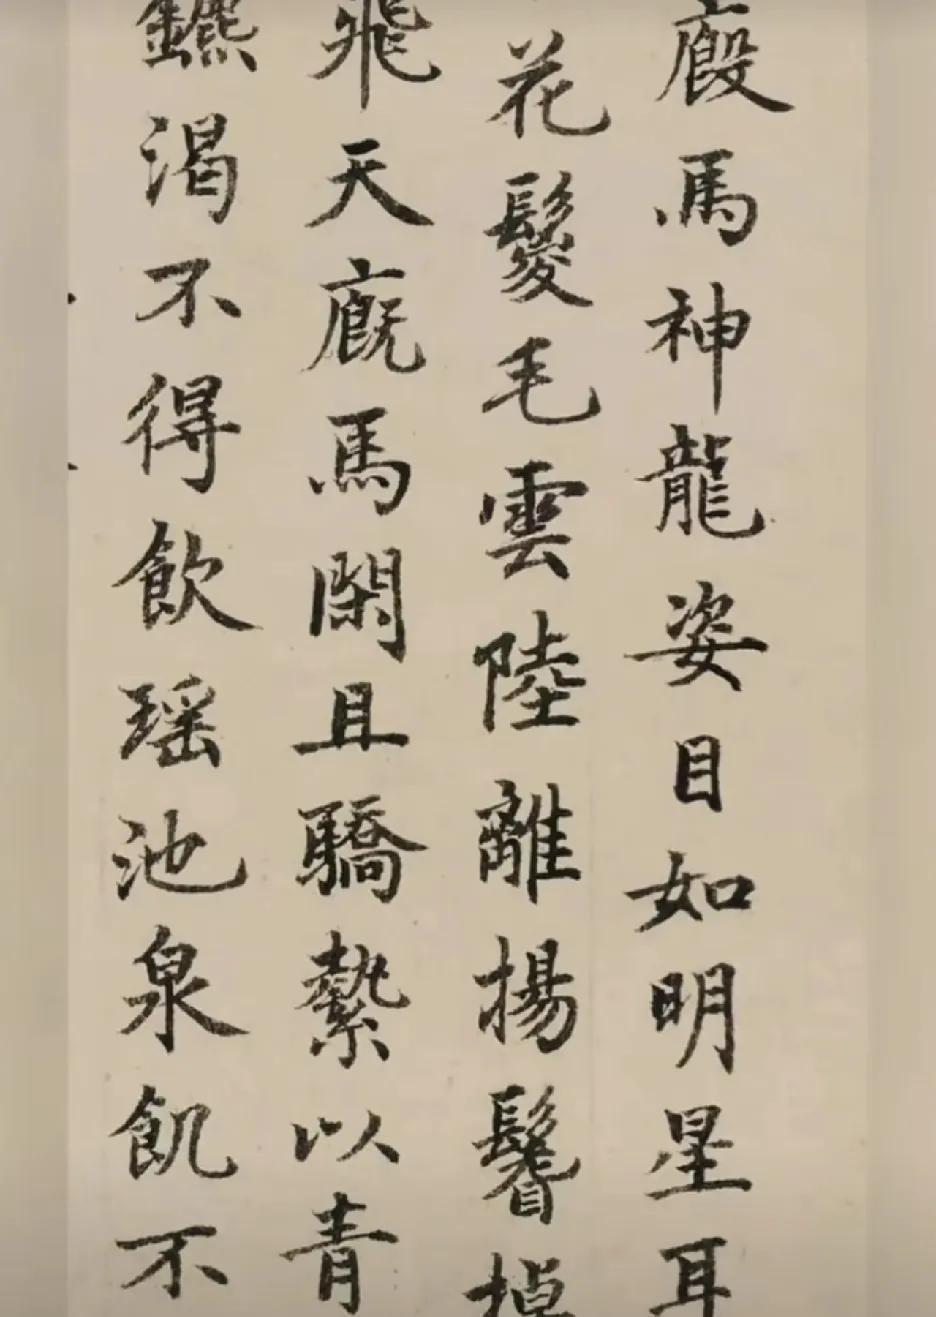 廄馬神龍姿目如明星耳
花鬉毛雲陸離揚鬐掉
飛天廐馬閑且驕縶以青
鑣渴不得飲瑶池泉飢不